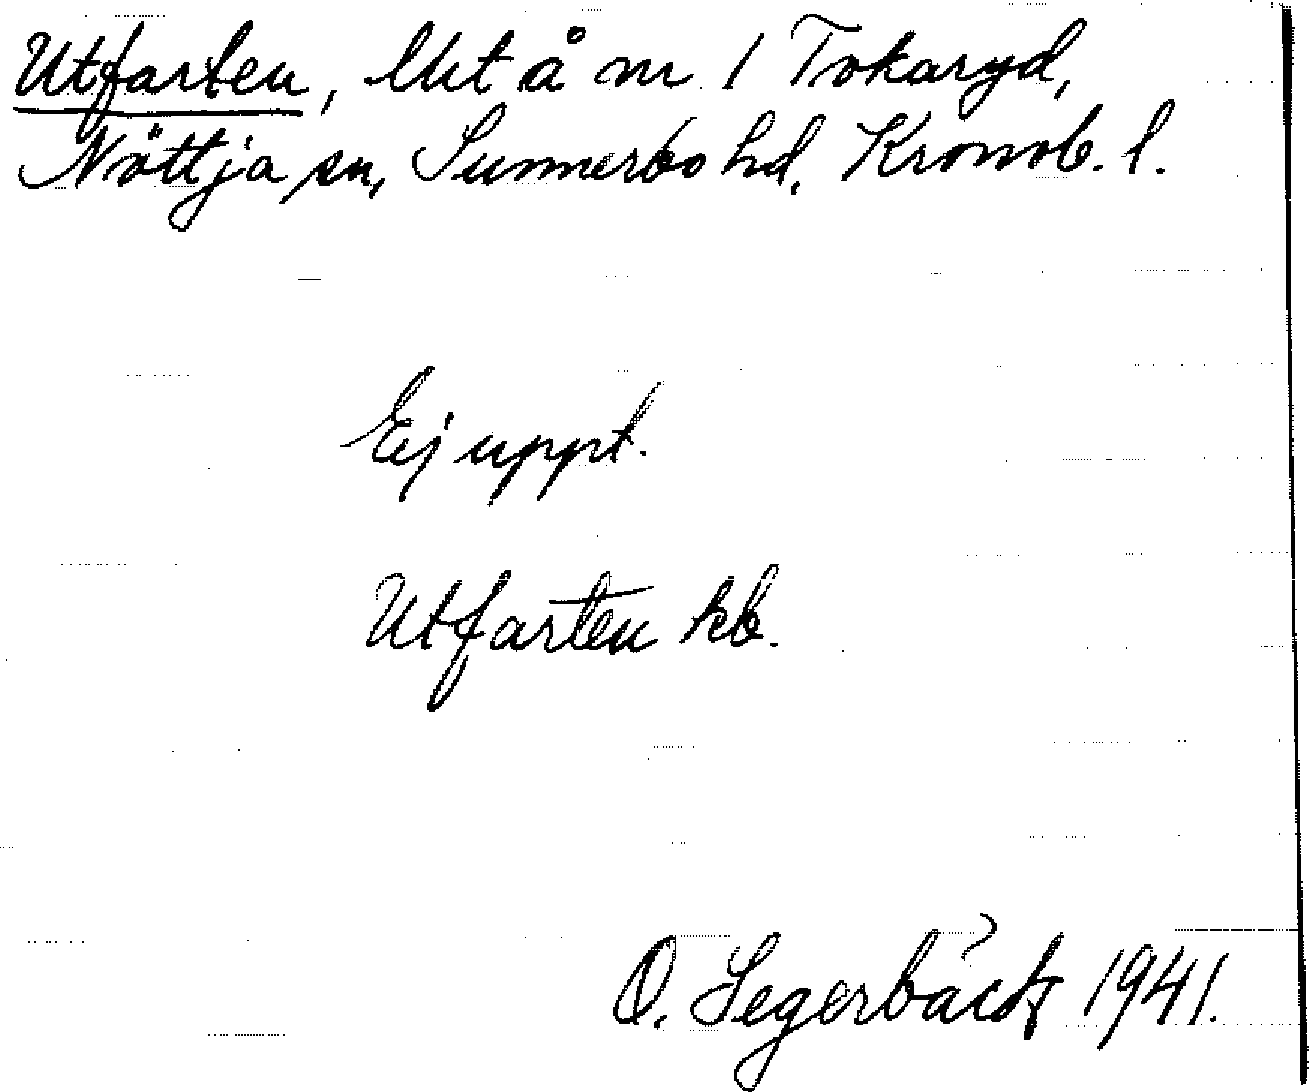 Utfarten, lht å nr 1 Tokaryd,
Nöttja sn, Sunnerbo hd, Kronob. l.
Ej uppt.
Utfarten kb.
O. Segerbäck 1941.